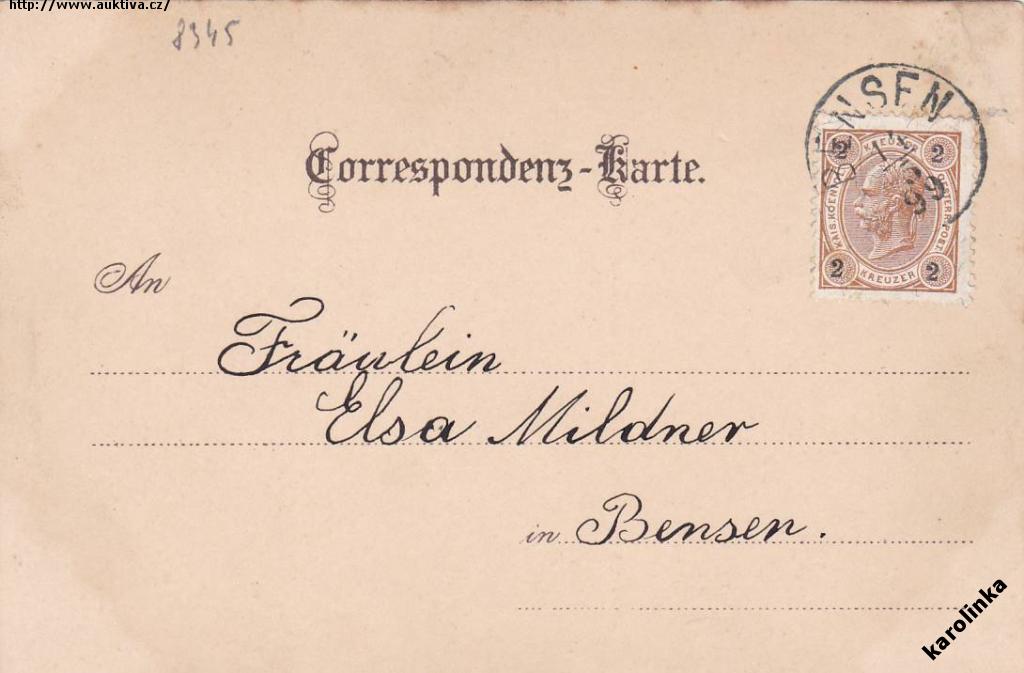 http://www.auktiva.cz/
8345
ENSEN
99
Correspondenz-Karte.
2 KREUZER 2
KAIS. KOEN
OESTERR. POST.
2 KREUZER 2
An
Fräulein
Elsa Mildner
in Bensen.
karolinka